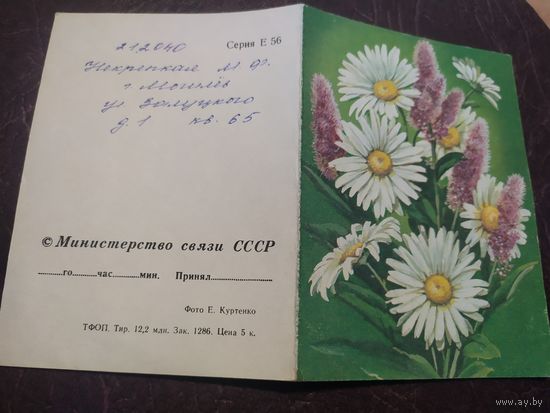 212040
Серия Е 56
Некрепкая М. Ф.
г. Могилёв
ул. Залуцкого
д. 1 кв. 65
© Министерство связи СССР
............го............час.............мин. Принял...........................
Фото Е. Куртенко
ТФОП. Тир. 12,2 млн. Зак. 1286. Цена 5 к.
www.ay.by